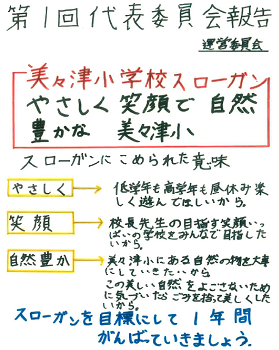 第1回代表委員会報告
運営委員会
美々津小学校スローガン
やさしく 笑顔で 自然
豊かな 美々津小
スローガンにこめられた意味
やさしく
低学年も高学年も昼休み楽
しく遊んでほしいから。
笑顔
校長先生の目指す笑顔いっ
ぱいの学校をみんなで目指した
いから。
自然豊か
美々津小にある自然の物を大事
にしていきたいから
この美しい自然をよごさないため
に気づいたらごみを拾って美しくした
いから。
スローガンを目標にして1年間
がんばっていきましょう。